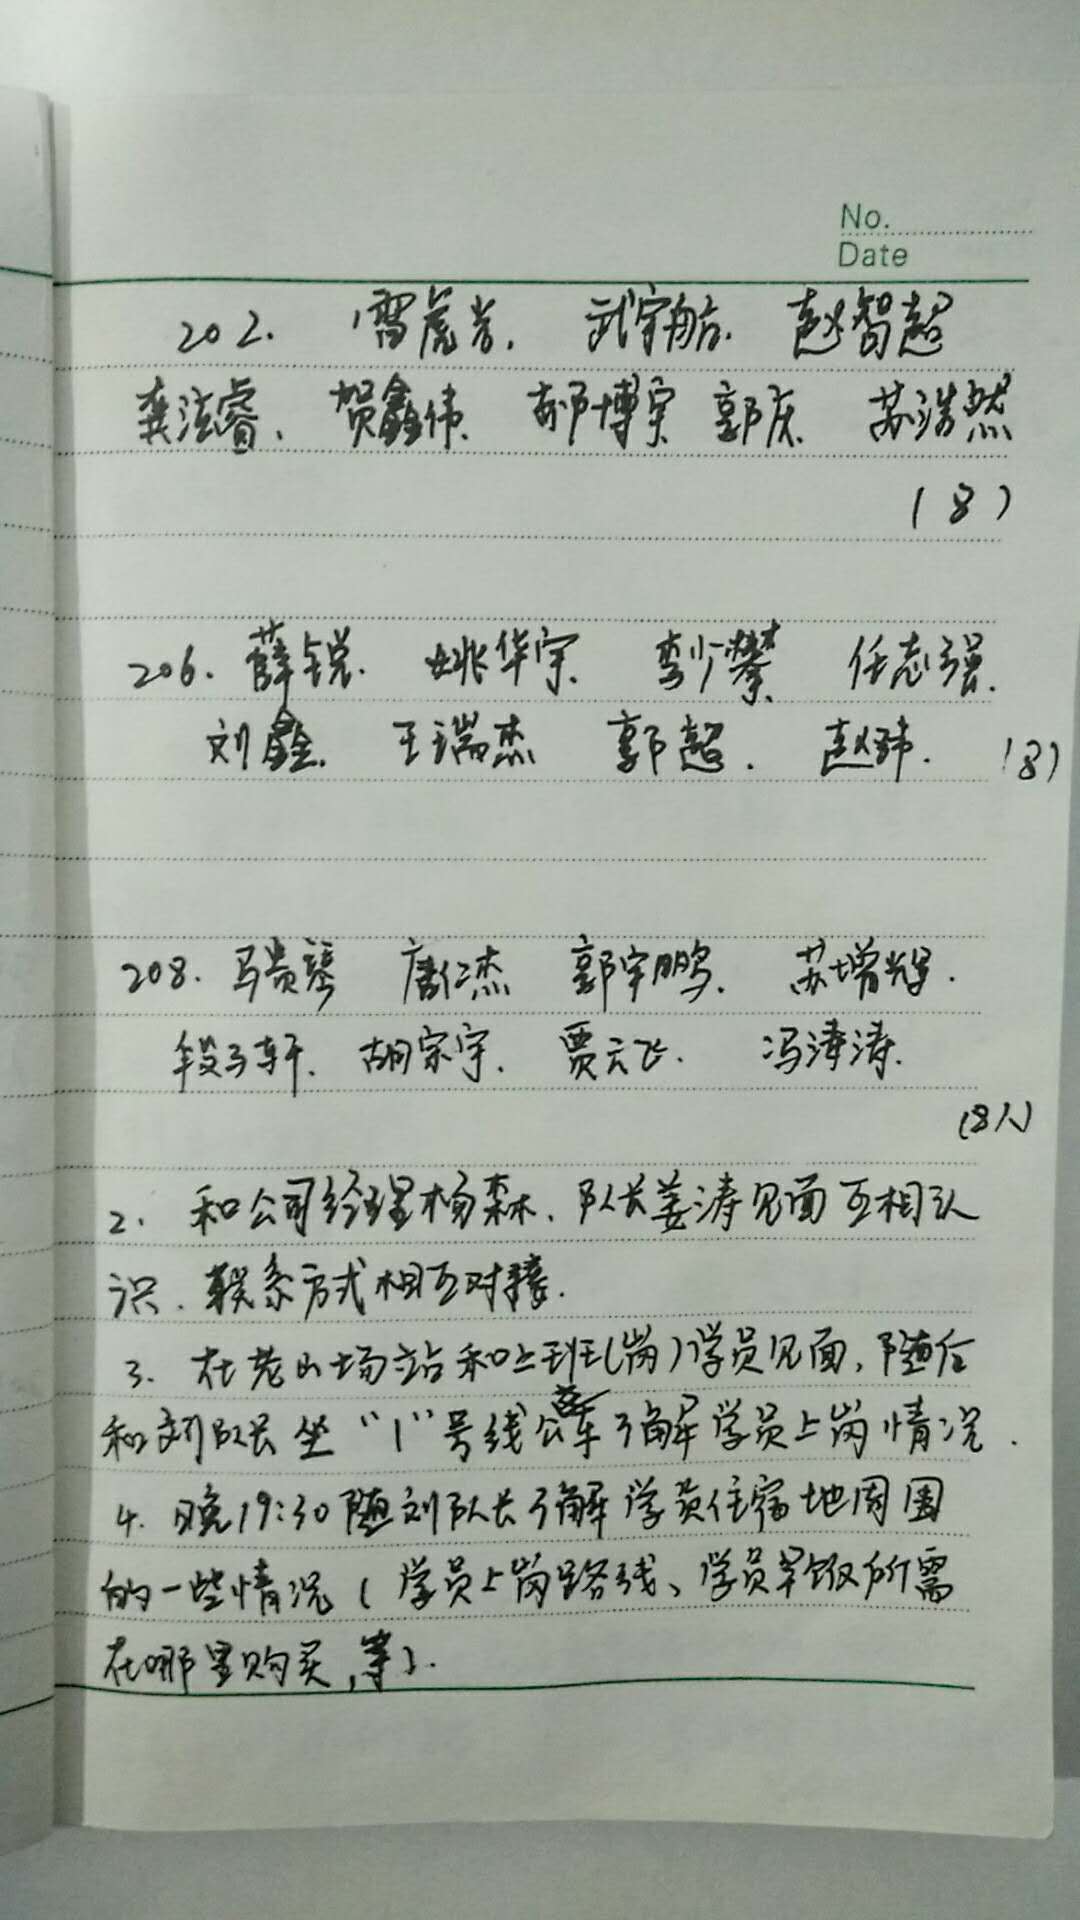 No.
Date
202. 雷虎岩. 武宇航. 赵智超
龚泫睿. 贺鑫伟. 郝博宗 郭庆. 苏浩然
(8)
206. 薛锐. 姚华宇. 李少攀 任志强.
刘鑫. 王瑞杰 郭超. 赵玮. (8)
208. 马贵琴 唐仁杰 郭宇鹏. 苏增辉.
段子轩. 胡宗宇. 贾云飞. 冯涛涛.
(8人)
2. 和公司经理杨森. 队长姜涛见面互相认
识. 联系方式相互对接.
3. 在老山场站和上班(岗)学员见面, 随后
和刘队长坐“1”号线公交车了解学员上岗情况.
4. 晚19:30随刘队长了解学员住宿地周围
的一些情况(学员上岗路线、学员早饭所需
在哪里购买,等).